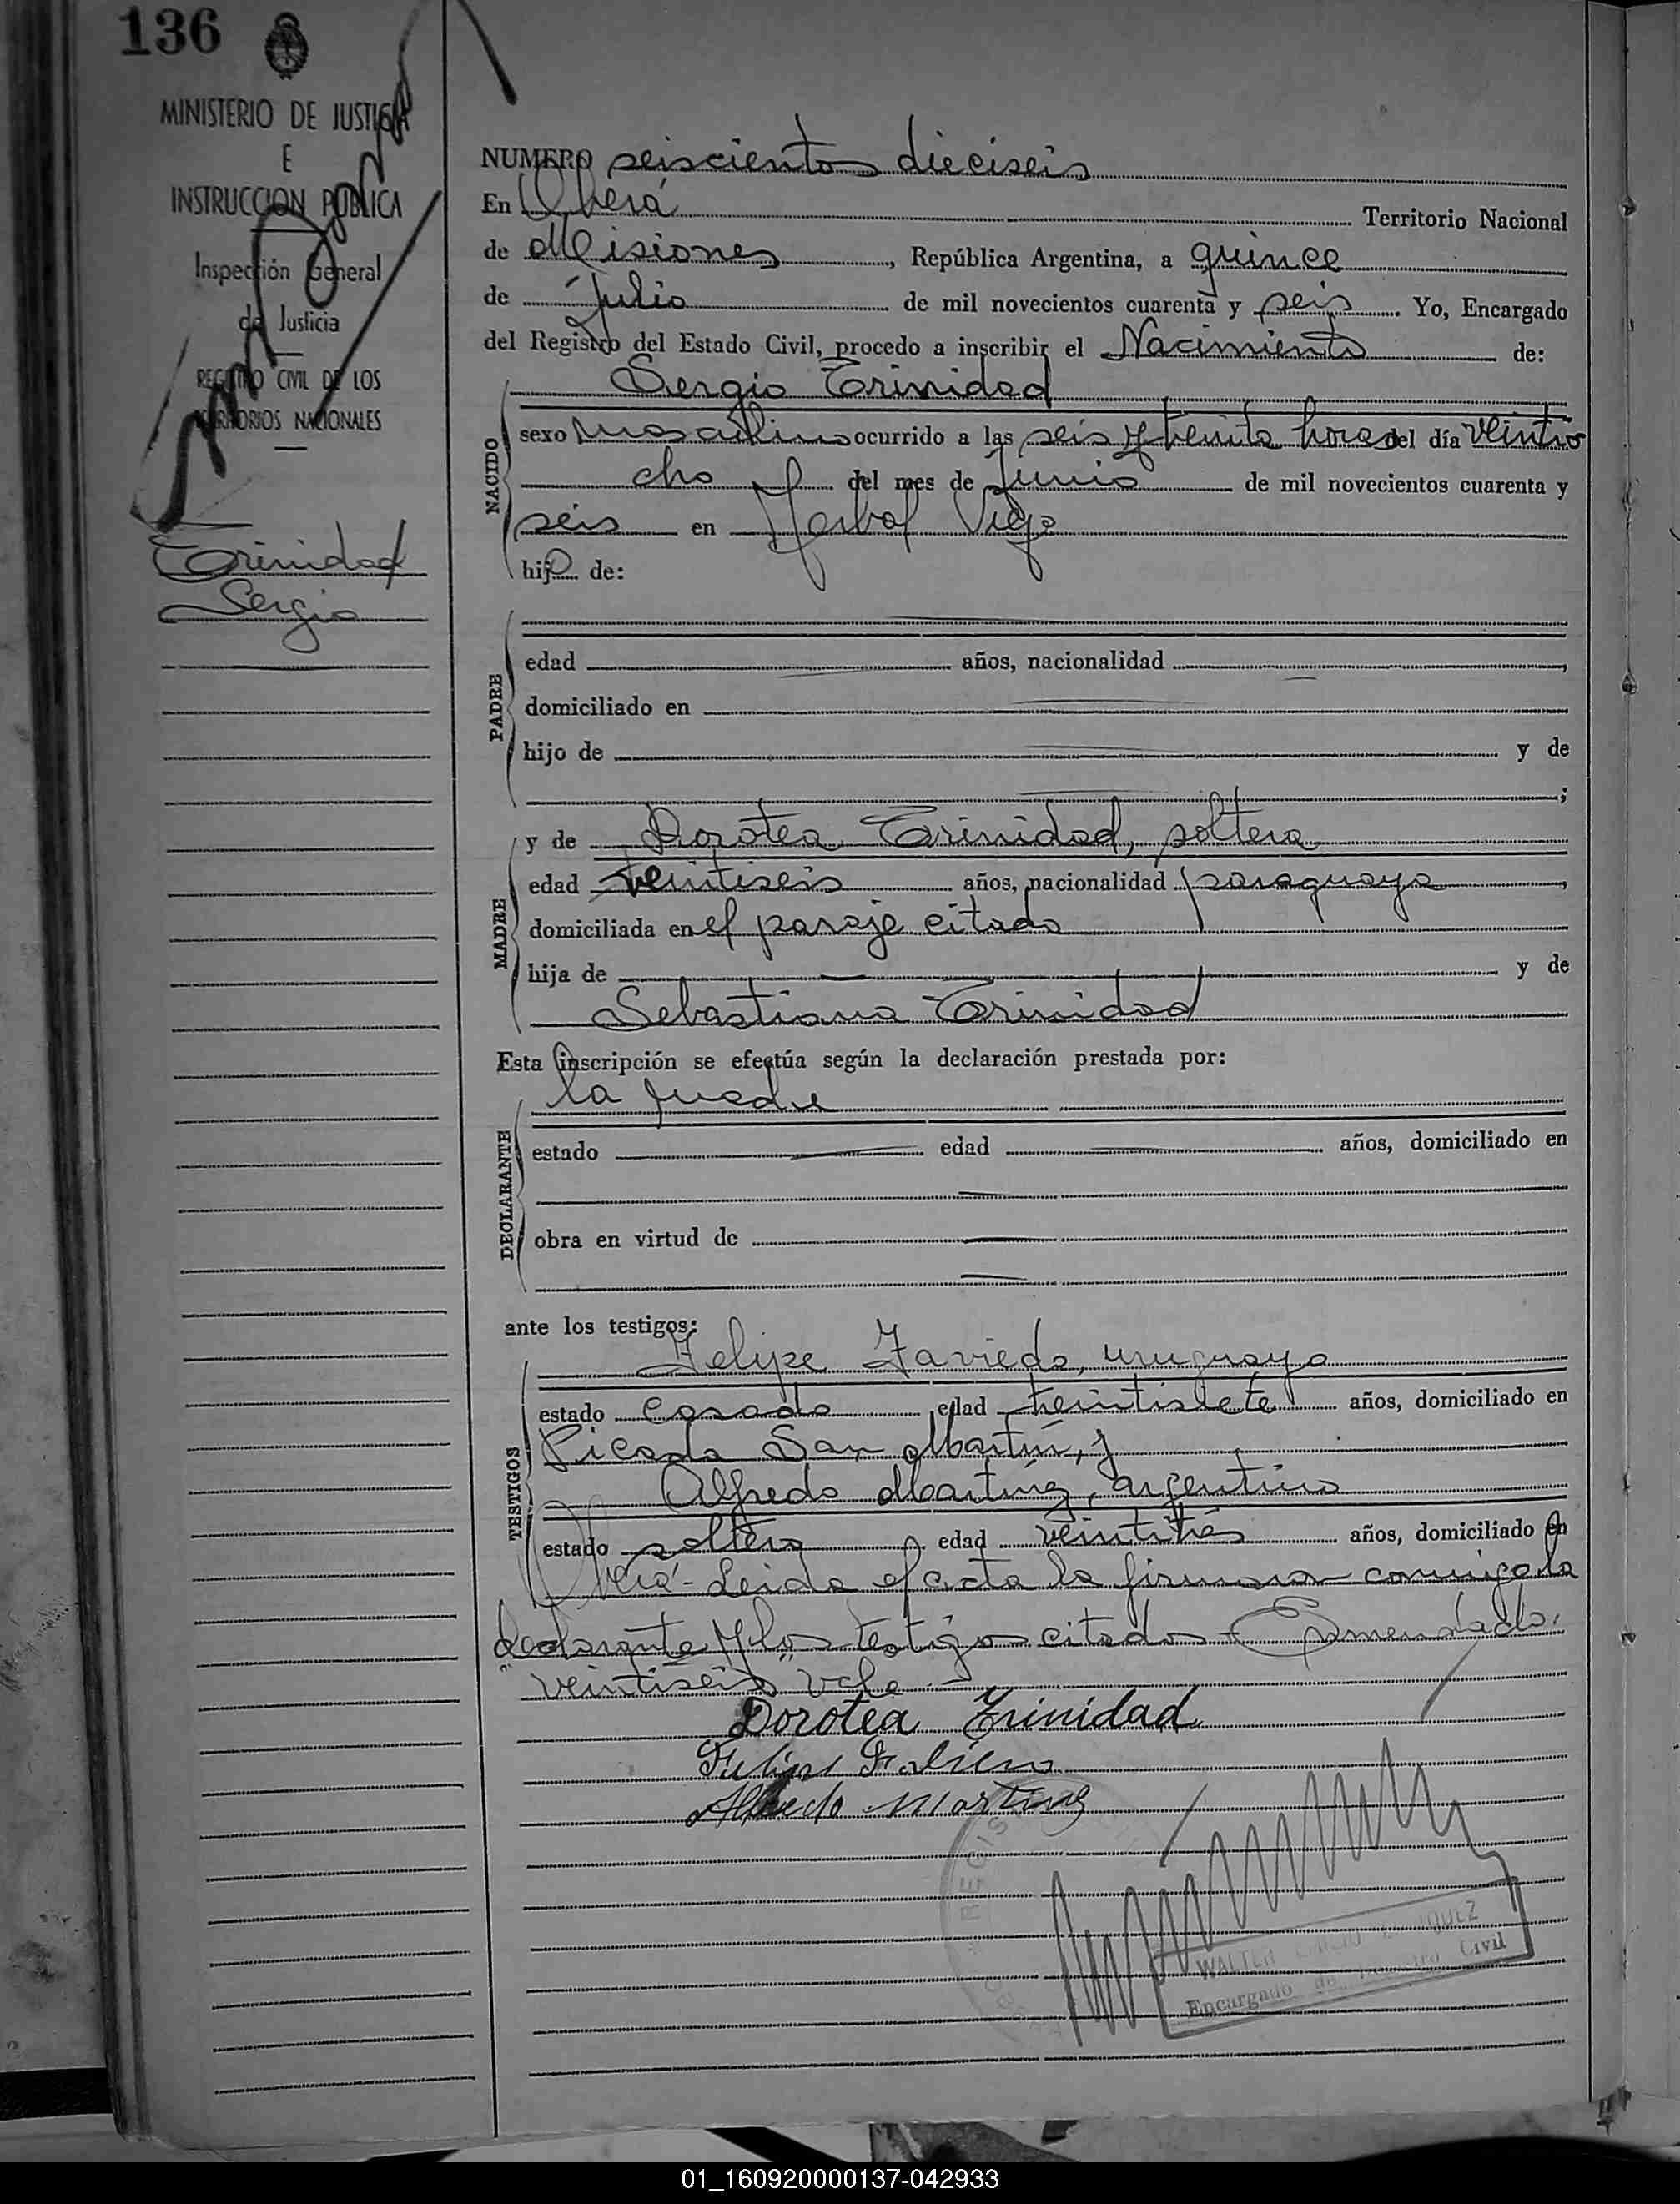 136
MINISTERIO DE JUSTICIA
E
INSTRUCCION PUBLICA
Inspección General
de Justicia
REGISTRO CIVIL DE LOS
TERRITORIOS NACIONALES
Trinidad
Sergio
NUMERO seiscientos dieciseis
En Oberá Territorio Nacional
de Misiones, República Argentina, a quince
de Julio de mil novecientos cuarenta y seis. Yo, Encargado
del Registro del Estado Civil, procedo a inscribir el Nacimiento de:
Sergio Trinidad
NACIDO
sexo masculino ocurrido a las seis y treinta horas del día veintio
cho del mes de Junio de mil novecientos cuarenta y
seis en Yerbal Viejo
hijo de:
PADRE
edad años, nacionalidad ,
domiciliado en
hijo de y de
;
MADRE
y de Dorotea Trinidad, soltera
edad veintiseis años, nacionalidad paraguaya,
domiciliada en el paraje citado
hija de y de
Sebastiana Trinidad
Esta inscripción se efectúa según la declaración prestada por:
DECLARANTE
la madre
estado edad años, domiciliado en
obra en virtud de
ante los testigos:
TESTIGOS
Felipe uruguayo
estado casado edad años, domiciliado en
Picada San Martín, y
Alfredo Martinz, argentino
estado soltero edad veintitrés años, domiciliado en
Oberá - Leida el acta la firmaron conmigo la
declarante y los testigos citados - Enmendado:
"veintiseis" vale.-
Dorotea Trinidad
Alfredo Martinz
REGIS
WALTER
Encargado de Registro Civil
01_160920000137-042933